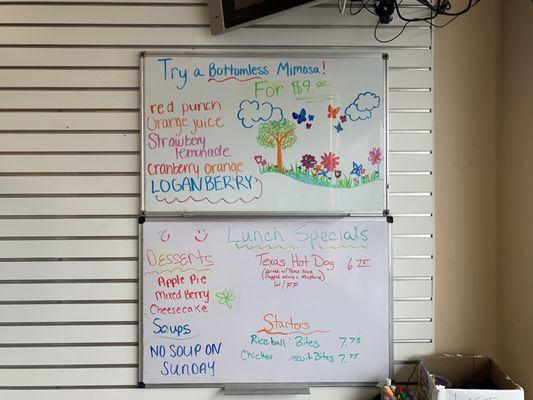 Try a Bottomless Mimosa!
For $9.00
red punch
Orange juice
Strawbery
lemonade
cranberry orange
LOGANBERRY
Lunch Specials
Desserts
Apple Pie
Mixed Berry
Cheesecake
Soups
NO SOUP ON
SUNDAY
Texas Hot Dog 6.75
(served w/ Texas Sauce
Chopped onions & Mustard)
w/ FF
Starters
Rice ball Bites 7.75
Chicken iscuit Bites 7.75